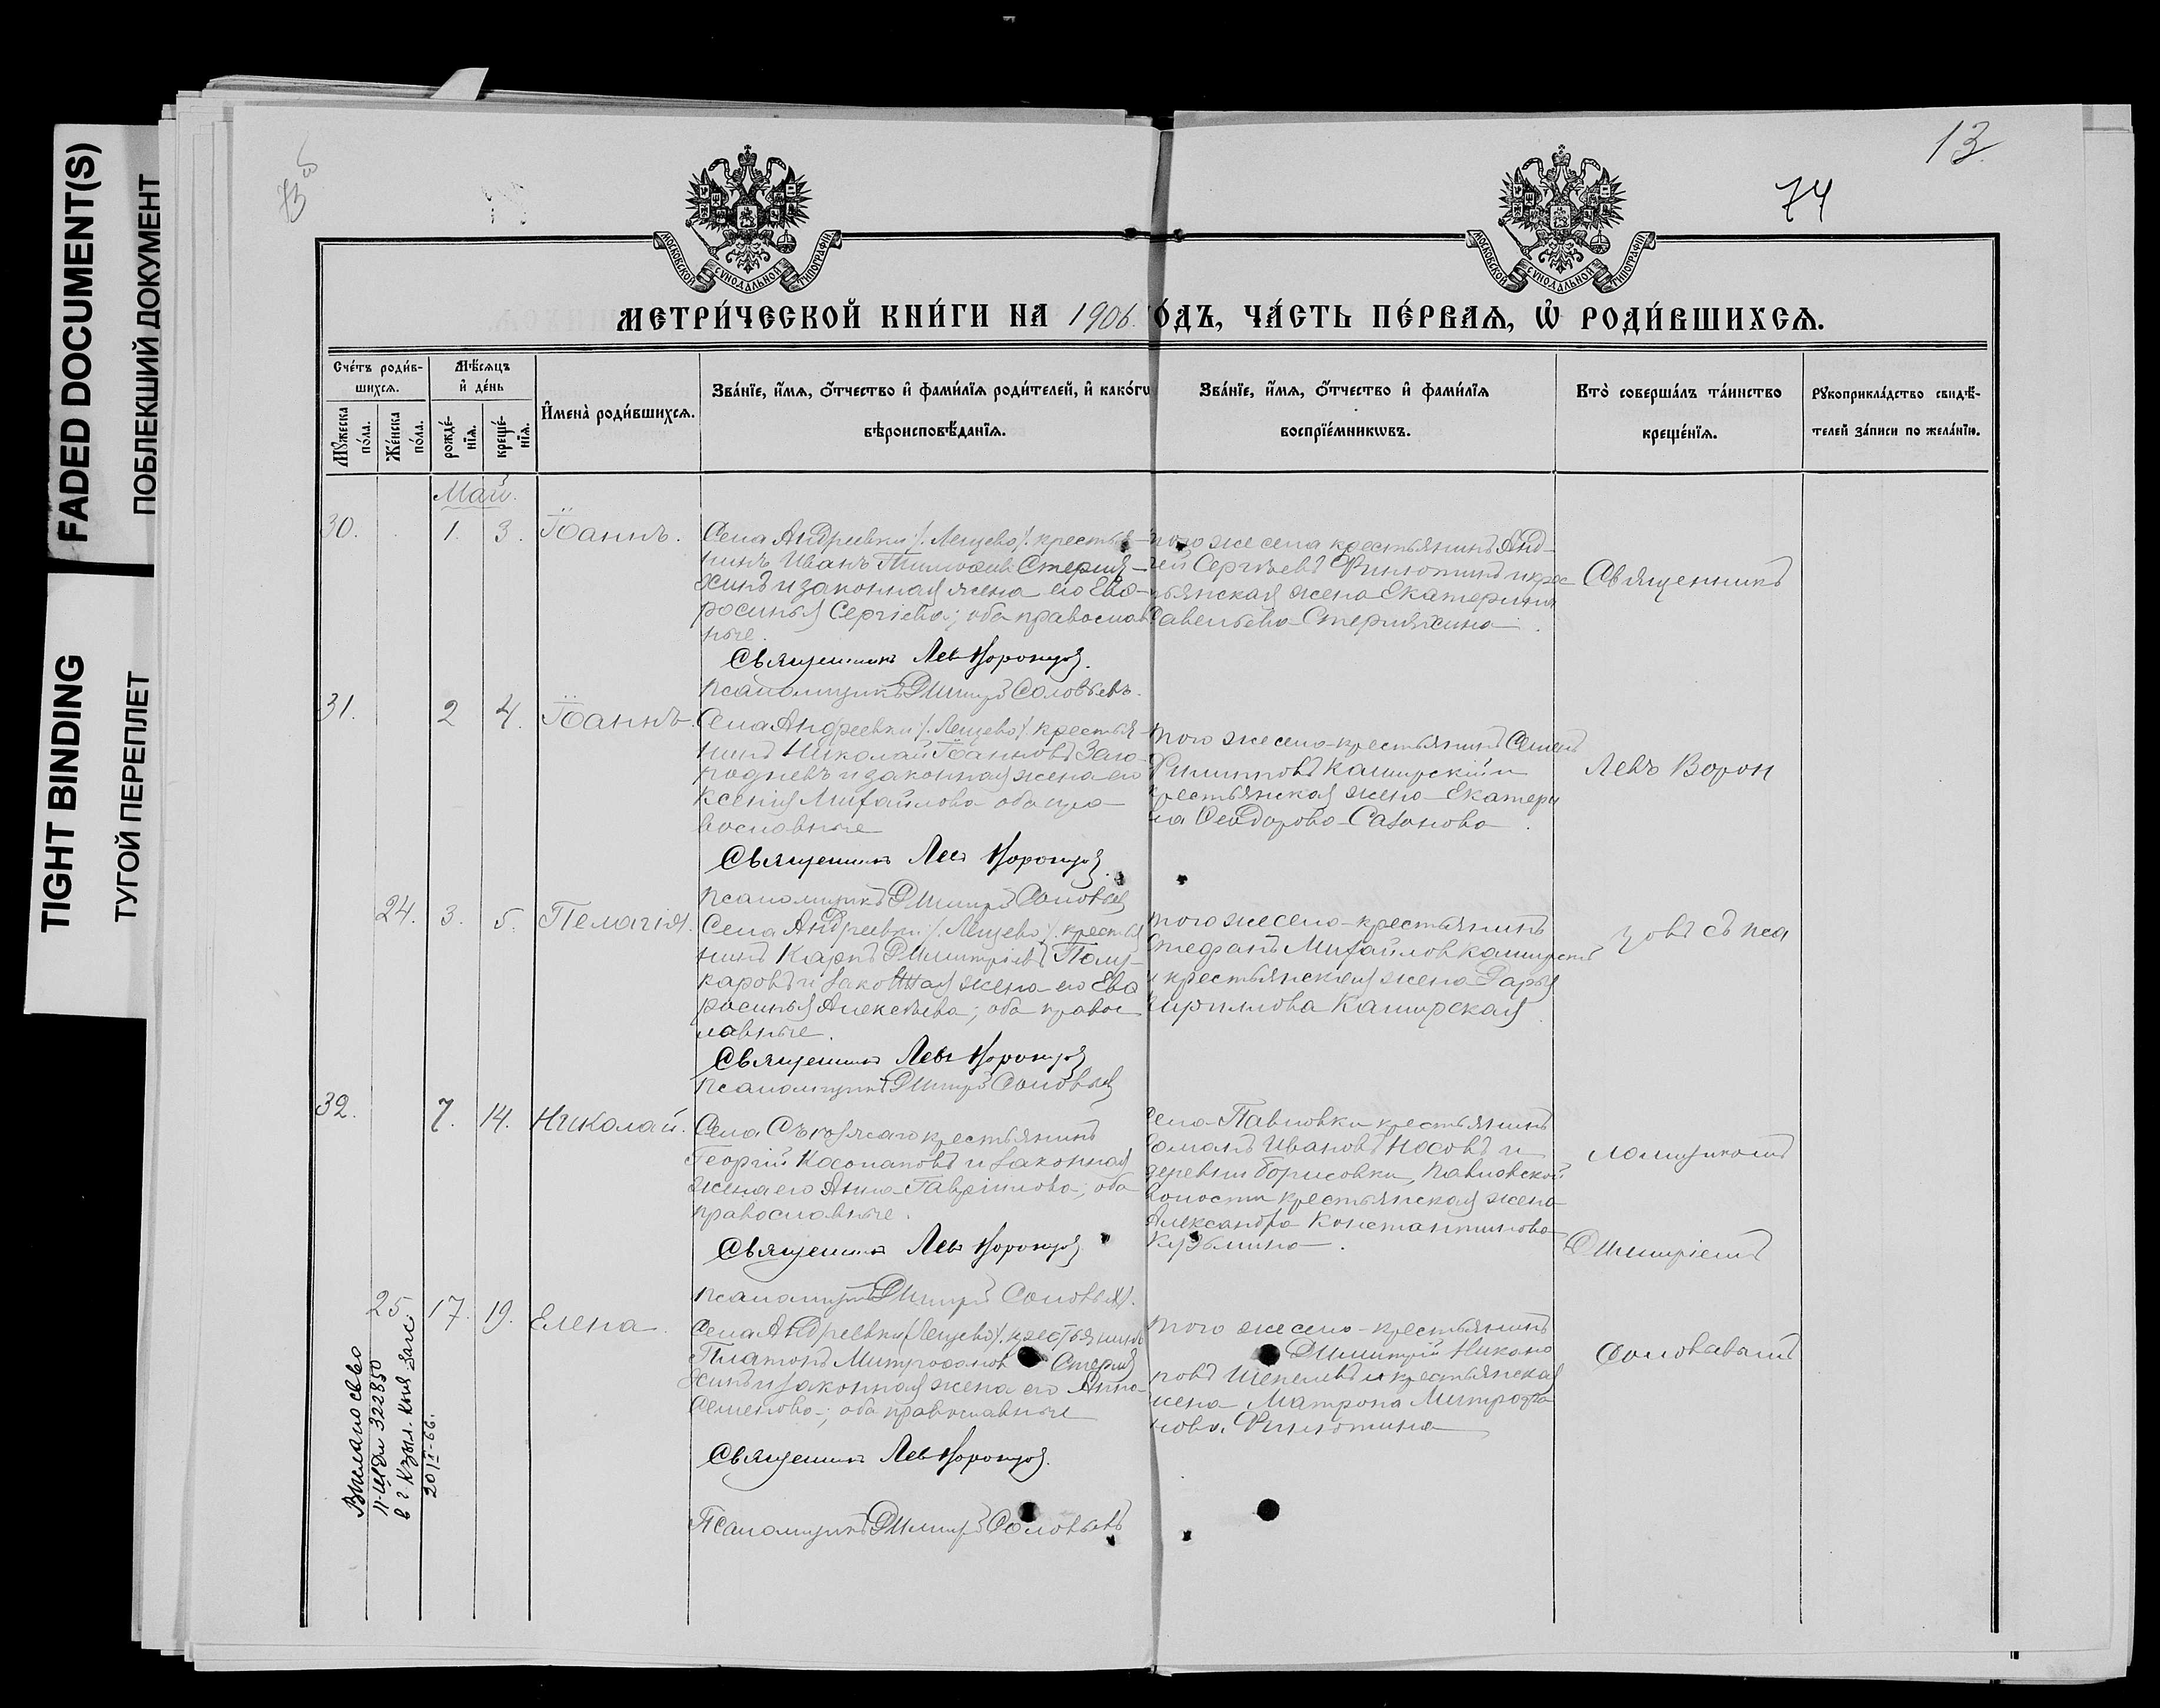 FADED DOCUMENT(S)
ПОБЛЕКШИЙ ДОКУМЕНТ
TIGHT BINDING
ТУГОЙ ПЕРЕПЛЕТ
13
74
МОСКОВСКОЙ СѴНОДАЛЬНОЙ ТИПОГРАФІИ
МОСКОВСКОЙ СѴНОДАЛЬНОЙ ТИПОГРАФІИ
МЕТРИ́ЧЕСКОЙ КНИ́ГИ НА 1906 ГО́ДЪ, ЧА́СТЬ ПЕ́РВАѦ, Ѡ҆ РОДИ́ВШИХСѦ.
Сче́тъ роди́в-
шихсѧ.
Мѣ́сѧцъ
и҆ де́нь
Мꙋ́жеска по́ла.
Же́нска по́ла.
рожде́-
нїѧ.
креще́-
нїѧ.
И҆мена̀ роди́вшихсѧ.
Зва́нїе, и҆́мѧ, ѻ҆́тчество и҆ фами́лїѧ роди́телей, и҆ како́гѡ
вѣроисповѣ́данїѧ.
Зва́нїе, и҆́мѧ, ѻ҆́тчество и҆ фами́лїѧ
воспрїе́мникѡвъ.
Кто̀ соверша́лъ та́инство
креще́нїѧ.
Рꙋкоприкла́дство свидѣ́-
телей за́писи по жела́нїю.
Май.
30. 1. 3. Іоаннъ.
Села Андреевки /. Лещево /. крестья-
нинъ Иванъ Тимофеевъ Стерля-
хинъ и законная жена его Евф-
росинья Сергіева; оба православ
ные.
Священникъ Левъ Воронцов.
Псаломщикъ Димитрій Соловьевъ.
того же села крестьянинъ Анд-
рей Сергѣевъ Филютинъ и крес
тьянская жена Екатерина
Савельева Стерляхина.
Священникъ
31. 2 4. Іоаннъ.
Села Андреевки /. Лещево /. крестья-
нинъ Николай Іоанновъ Заго-
родневъ и законная жена его
Ксенія Михайлова оба пра-
вославные
Священникъ Левъ Воронцов.
Псаломщикъ Димитрій Соловьев
того же села крестьянинъ Семенъ
Филипповъ Каширскій и
крестьянская жена Екатери
на Феодорова Сазонова.
Левъ Ворон
24. 3. 5. Пелагія.
Села Андреевки /. Лещево /. крестья
нинъ Карпъ Димитріевъ Поли-
карповъ и законная жена его Евф
росинья Алексѣева; оба правос
лавные.
Священникъ Левъ Воронцов
Псаломщикъ Димитрій Соловьев
того же села крестьянинъ
Стефанъ Михайлов Каширскій
и крестьянская жена Дарья
Кириллова Каширская
цовъ съ пса
32. 7. 14. Николай.
Села крестьянинъ
Георгій и законная
жена его Анна Гавріилова; оба
православные.
Священникъ Левъ Воронцов
Псаломщикъ Димитрій Соловьев.
села Павловки крестьянинъ
Романъ Ивановъ Носовъ и
деревни Борисовки, Павловской
волости крестьянская жена
Александра Константинова
Кузьмина.
ломщикомъ
Димитріемъ
25. 17. 19. Елена.
Села Андреевки (Лещево). крестьянинъ
Платонъ Митрофанов Стерля
хинъ и законная жена его Анна
Семенова; оба православные
Священникъ Левъ Воронцов.
Псаломщикъ Димитрій Соловьевъ
того же села крестьянинъ
Димитрій Никано
ровъ Шепелевъ и крестьянская
жена Матрона Митрофа
нова Филютина
Соловьевымъ
Выслано св-во
II-ЦЕ № 322850
в г. Кзыл. Кия Загс
20/I-66.